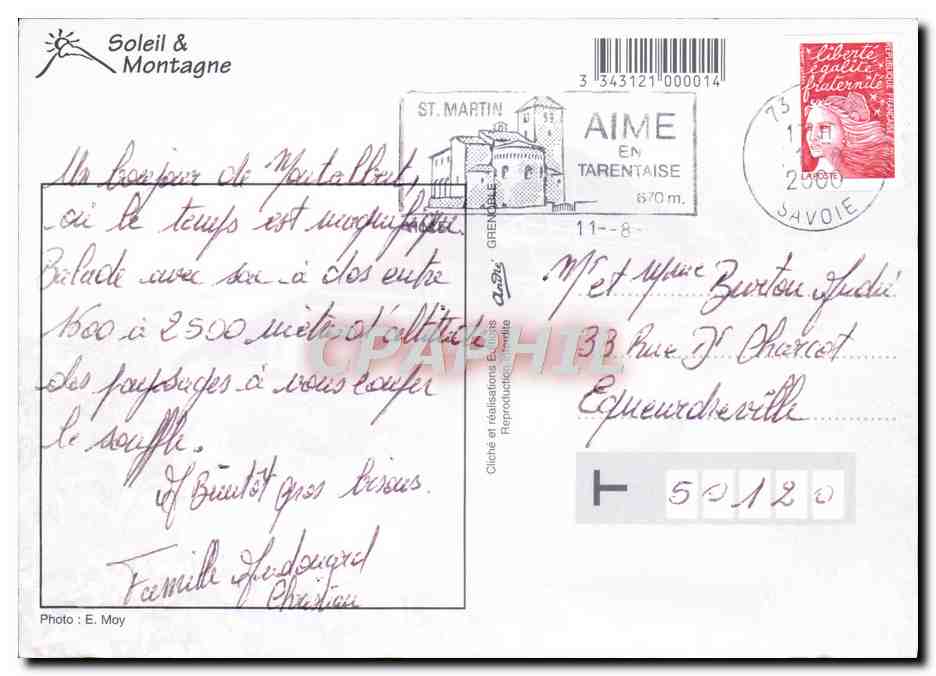 Soleil &
Montagne
3 343121 000014
liberté
égalité
fraternité
RÉPUBLIQUE FRANÇAISE
LA POSTE
ST. MARTIN
AIME
EN
TARENTAISE
670 m.
73
17 H
2000
SAVOIE
11--8-
Un bonjour de Montalbert,
où le temps est magnifique.
Balade avec sac à dos entre
1500 à 2500 mètres d'altitude
des paysages à vous couper
le souffle.
A Bientôt gros bisous.
Famille Audouard
Christian
Photo : E. Moy
Cliché et réalisations Editions André GRENOBLE
Reproduction interdite
CPAPHIL
Mr et Mme Burton André
33 Rue Dr Charcot
Equeurdreville
T 50120